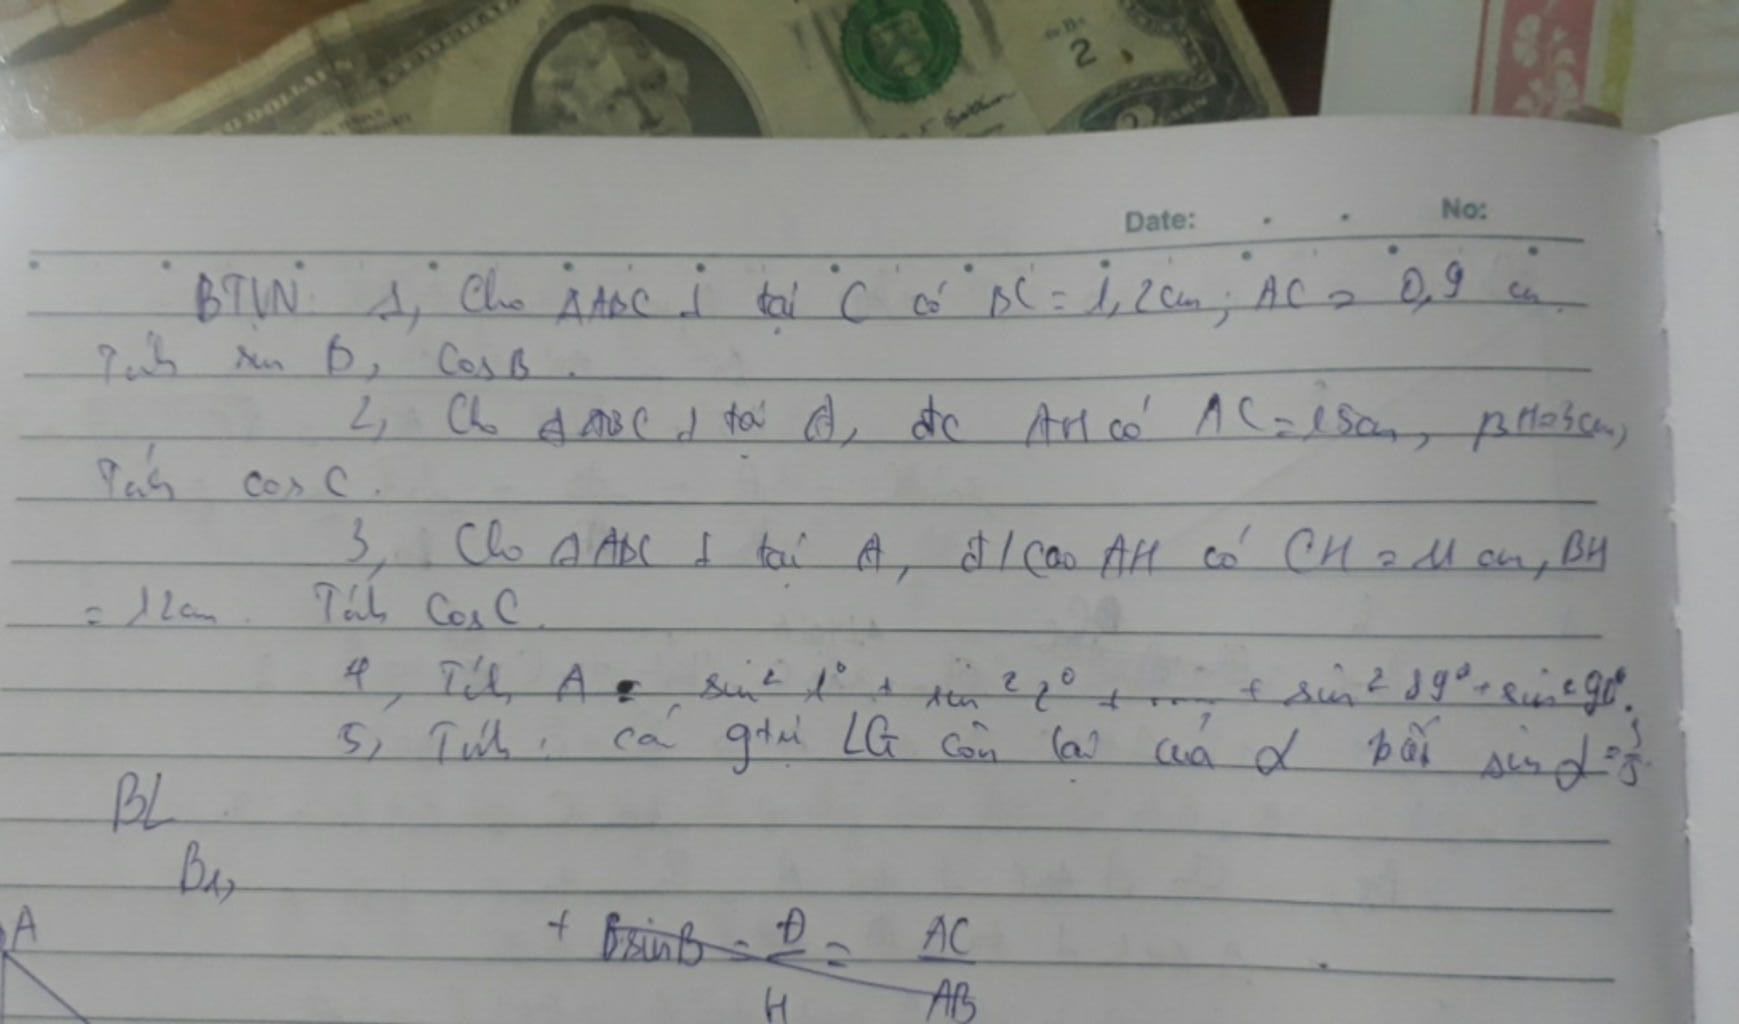 DOLLAR
2
Date: No:
BTVN: 1, Cho ΔABC ⊥ tại C có BC = 1,2cm; AC = 0,9 cm.
Tính sin B, CosB.
2, Cho ΔABC ⊥ tại A, đc AH có AC = 15cm, BH=3cm,
Tính cos C.
3, Cho ΔABC ⊥ tại A, đ/cao AH có CH = 11 cm, BH
= 12cm. Tính CosC.
4, Tính A = sin² 1° + sin² 2° + ..... + sin² 89° + sin² 90°.
5, Tính: các gtrị LG còn lại của α biết sin α =
BL
B1,
A
+ BsinB = Đ/H = AC/AB